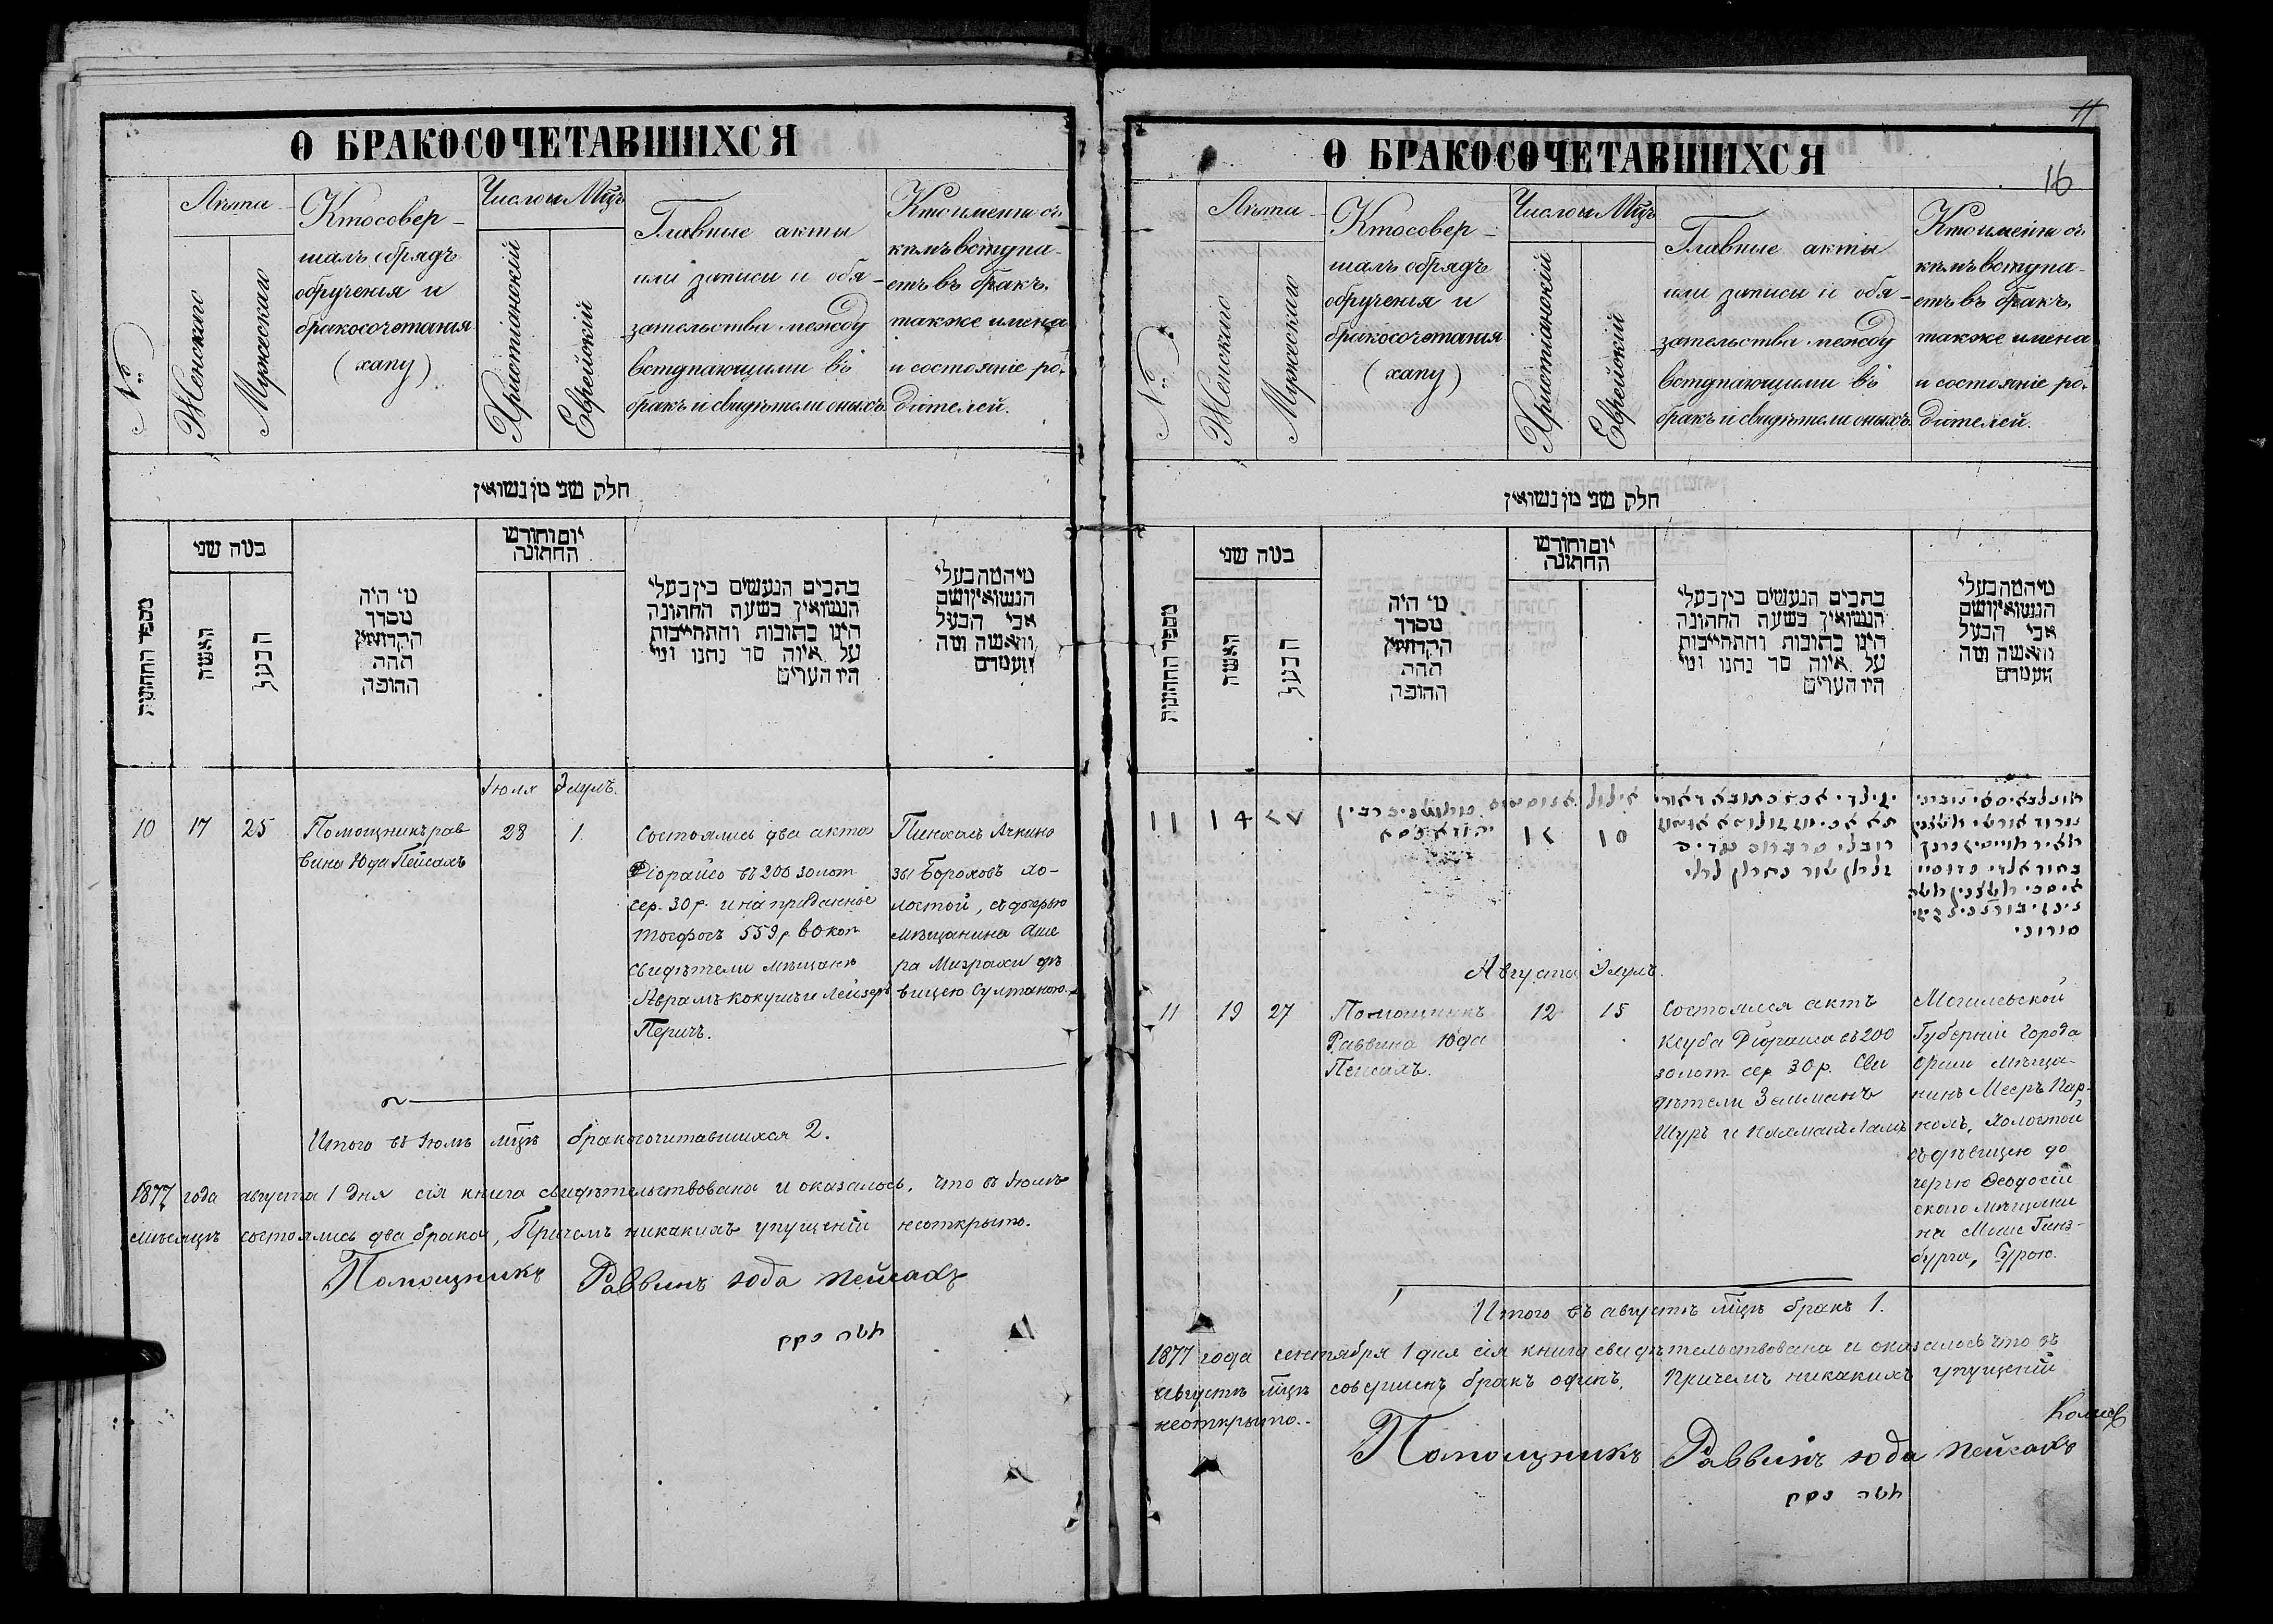 О БРАКОСОЧЕТАВШИХСЯ
№
Лѣта
Женскаго
Мужескаго
Кто совер-
шалъ обрядъ
обрученія и
бракосочетанія
(хапу)
Число и Мцъ
Христіанскій
Еврейскій
Главные акты
или записи и обя-
зательства между
вступающими въ
бракъ и свидѣтели оныхъ.
Кто именно съ
кѣмъ вступа-
етъ въ бракъ,
также имена
и состояніе ро-
дителей.
חלק שני מן נשואין
מספר החתונות
כמה שני
האשה
הבעל
מי היה
מסדר
הקדושין
תחת
החופה
יום וחודש
החתונה
כתבים הנעשים בין בעלי
הנשואין בשעת החתונה
היינו כתובות והתחייבות
על איזה סך נתנו ומי
היו העדים
מי המה בעלי
הנשואין ושם
אבי הבעל
והאשה ומה
מעמדם
Іюля Элулъ.
10 17 25
Помощникъ рав
вина Юда Пейсахъ
28 1.
Состоялись два акта
Діорайсо въ 200 золот
сер. 30 р. и на приданное
тосфосъ 559 р. 60 коп
свидѣтели мѣщане
Аврамъ Кокушъ и Лейзеръ
Перичъ.
Пинхасъ Ачкино
зы Бороховъ хо-
лостой, съ дочерью
мѣщанина Аше
ра Мизрахи дѣ
вицею Султаною.
Итого въ Іюлѣ мцѣ бракосочитавшихся 2.
1877 года августа 1 дня сія книга свидѣтельствована и оказалось, что въ Іюлѣ
мѣсяцѣ состоялись два брака, Причемъ никакихъ упущеній неоткрыто.
Помощникъ Раввинъ Юда Пейсахъ
О БРАКОСОЧЕТАВШИХСЯ
11
16
№
Лѣта
Женскаго
Мужескаго
Кто совер-
шалъ обрядъ
обрученія и
бракосочетанія
(хапу)
Число и Мцъ
Христіанскій
Еврейскій
Главные акты
или записи и обя-
зательства между
вступающими въ
бракъ и свидѣтели оныхъ.
Кто именно съ
кѣмъ вступа-
етъ въ бракъ,
также имена
и состояніе ро-
дителей.
חלק שני מן נשואין
מספר החתונות
כמה שני
האשה
הבעל
מי היה
מסדר
הקדושין
תחת
החופה
יום וחודש
החתונה
כתבים הנעשים בין בעלי
הנשואין בשעת החתונה
היינו כתובות והתחייבות
על איזה סך נתנו ומי
היו העדים
מי המה בעלי
הנשואין ושם
אבי הבעל
והאשה ומה
מעמדם
Августа Элулъ.
11 19 27
Помощникъ
Раввина Юда
Пейсахъ.
12 15
Состоялся актъ
Ксуба Діораиса въ 200
золот сер 30 р. Сви
дѣтели Залманъ
Шуръ и
Могилевской
Губерніи города
Орши мѣща-
нинъ Мееръ
холостой
съ дѣвицею до
черью Ѳеодосій
скаго мѣщани
на Гинз-
бурга, Сурою.
Итого въ августѣ мцѣ бракъ 1.
1877 года сентября 1 дня сія книга свидѣтельствована и оказалось что въ
августѣ мцѣ совершенъ бракъ одинъ, Причемъ никакихъ упущеній
неоткрыто.
Помощникъ Раввинъ Юда Пейсахъ